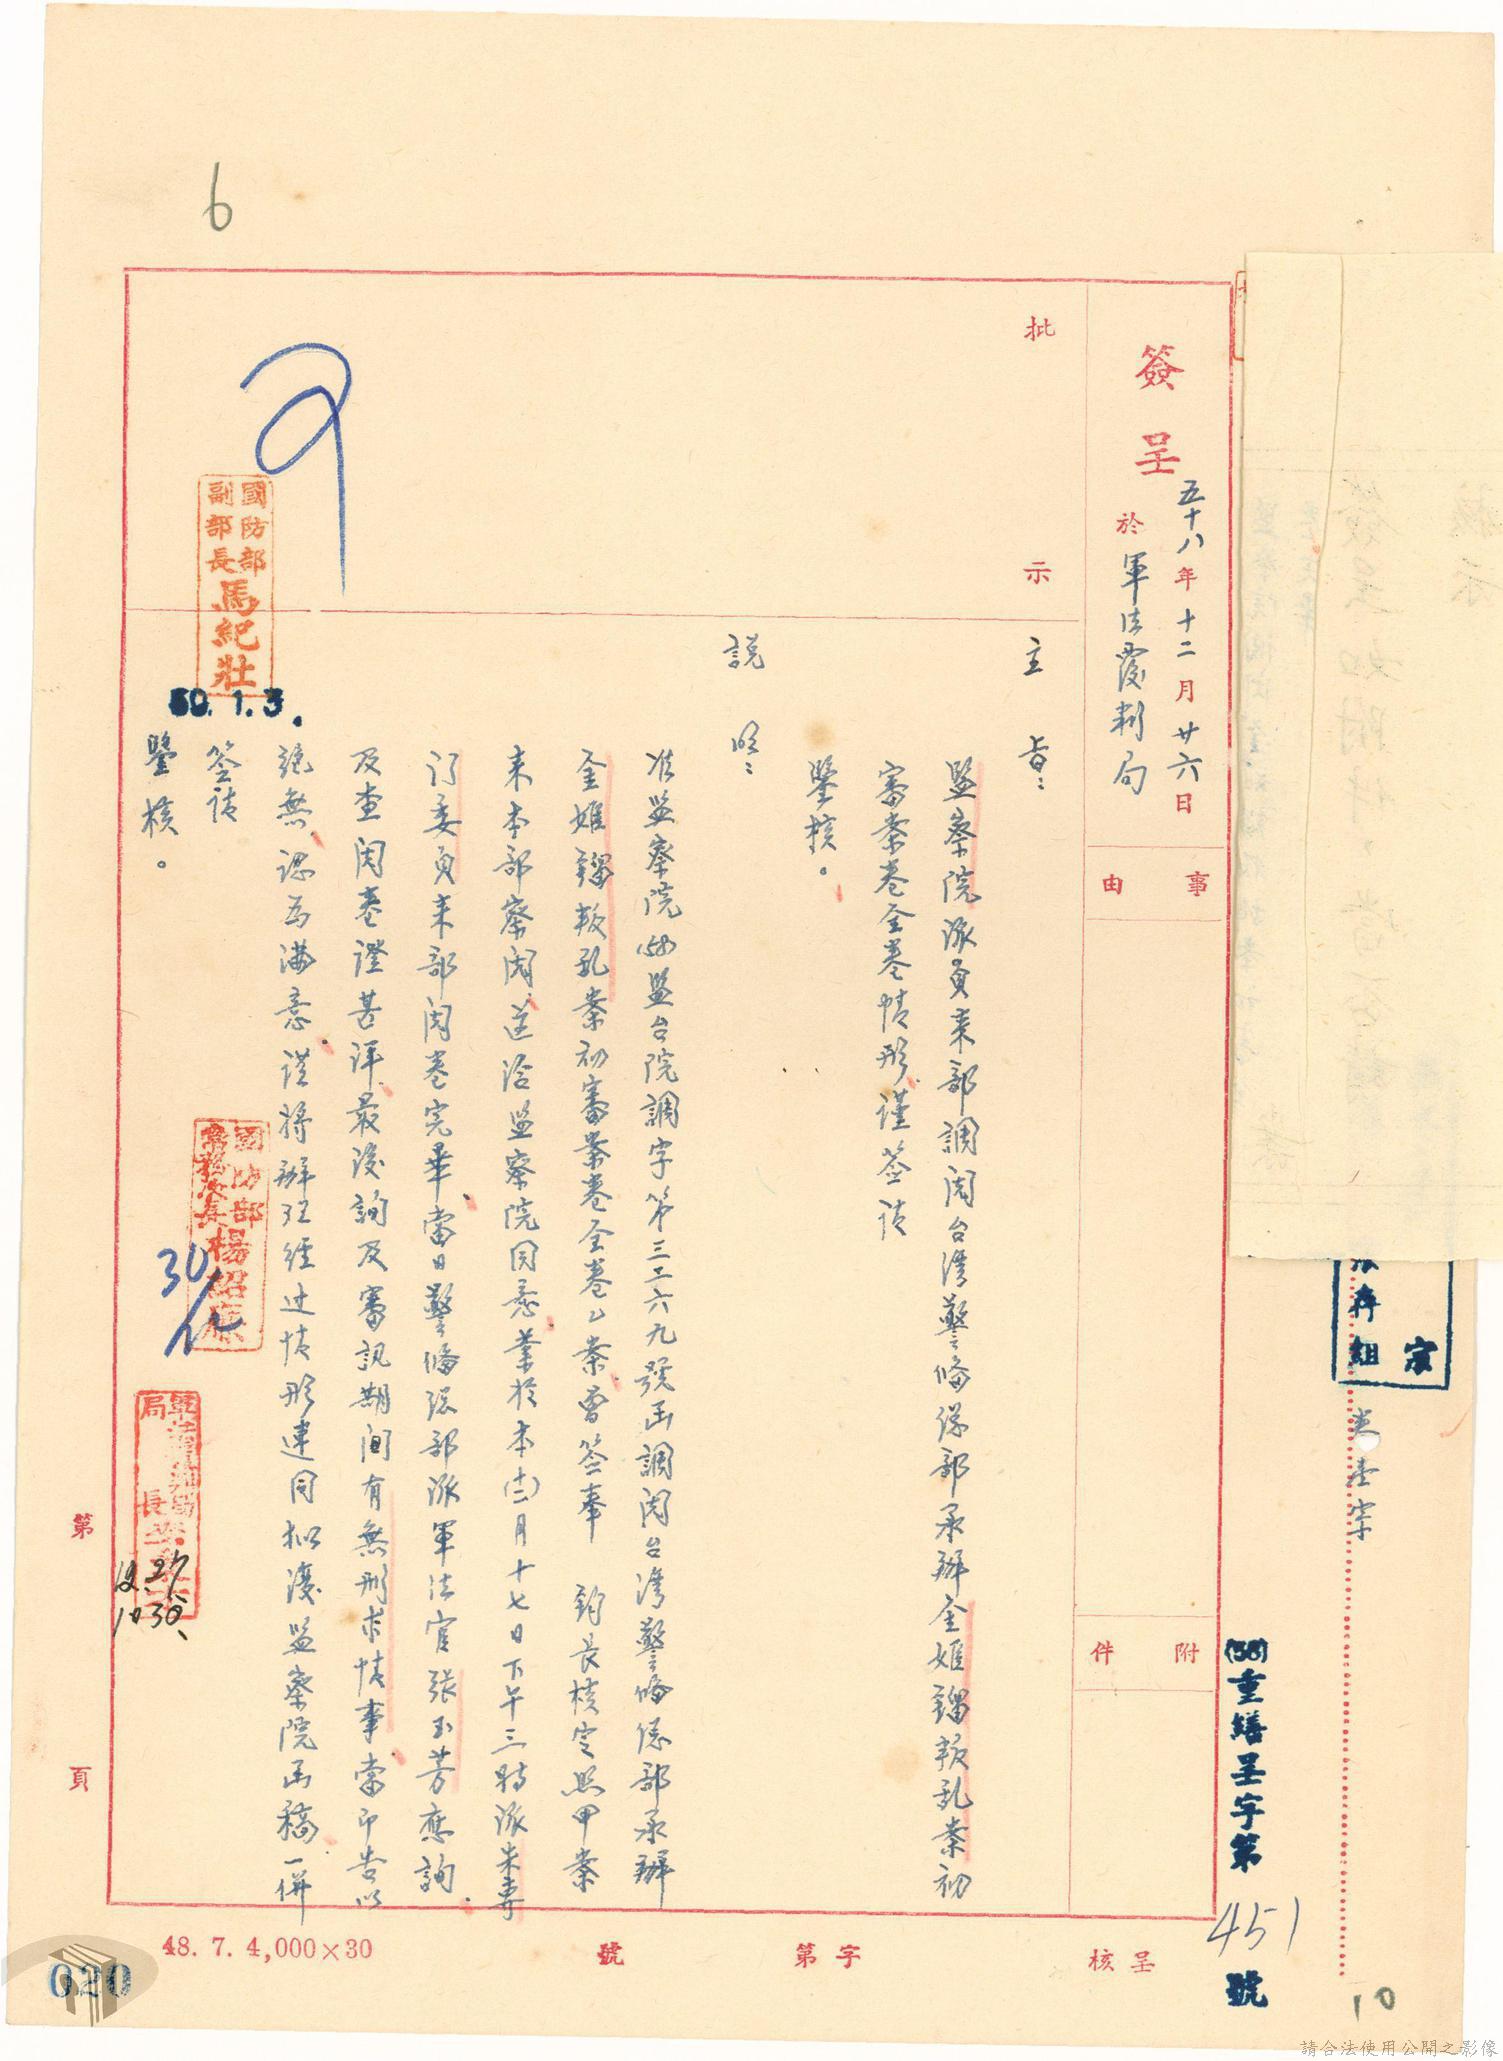 6
簽呈
五十八年十二月廿六日
於軍法覆判局
事由
附件
批示
主旨：
監察院派員來部調閱台灣警備總部承辦金姬鎦叛亂案初
審案卷全卷情形謹簽請
鑒核。
說明：
准監察院(58)監台院調字第三三六九號函調閱台灣警備總部承辦
金姬鎦叛亂案初審案卷全卷乙案曾簽奉 鈞長核定照甲案
來本部察閱並洽監察院同意業於本(十二)月十七日下午三時派朱專
門委員來部閱卷完畢當日警備總部派軍法官張玉芳應詢
及查閱卷證甚詳最後詢及審訊期間有無刑求情事當即告以
絕無認為滿意謹將辦理經過情形連同擬復監察院函稿一併
簽請
鑒核。
國防部
副部長
馬紀壯
50.1.3.
國防部
常務次長
楊紹廉
30/12
局長
12.27
1030
(58)重繕呈字第
451
號
組
呈核
字第
號
第
頁
48. 7. 4,000×30
020
10
請合法使用公開之影像